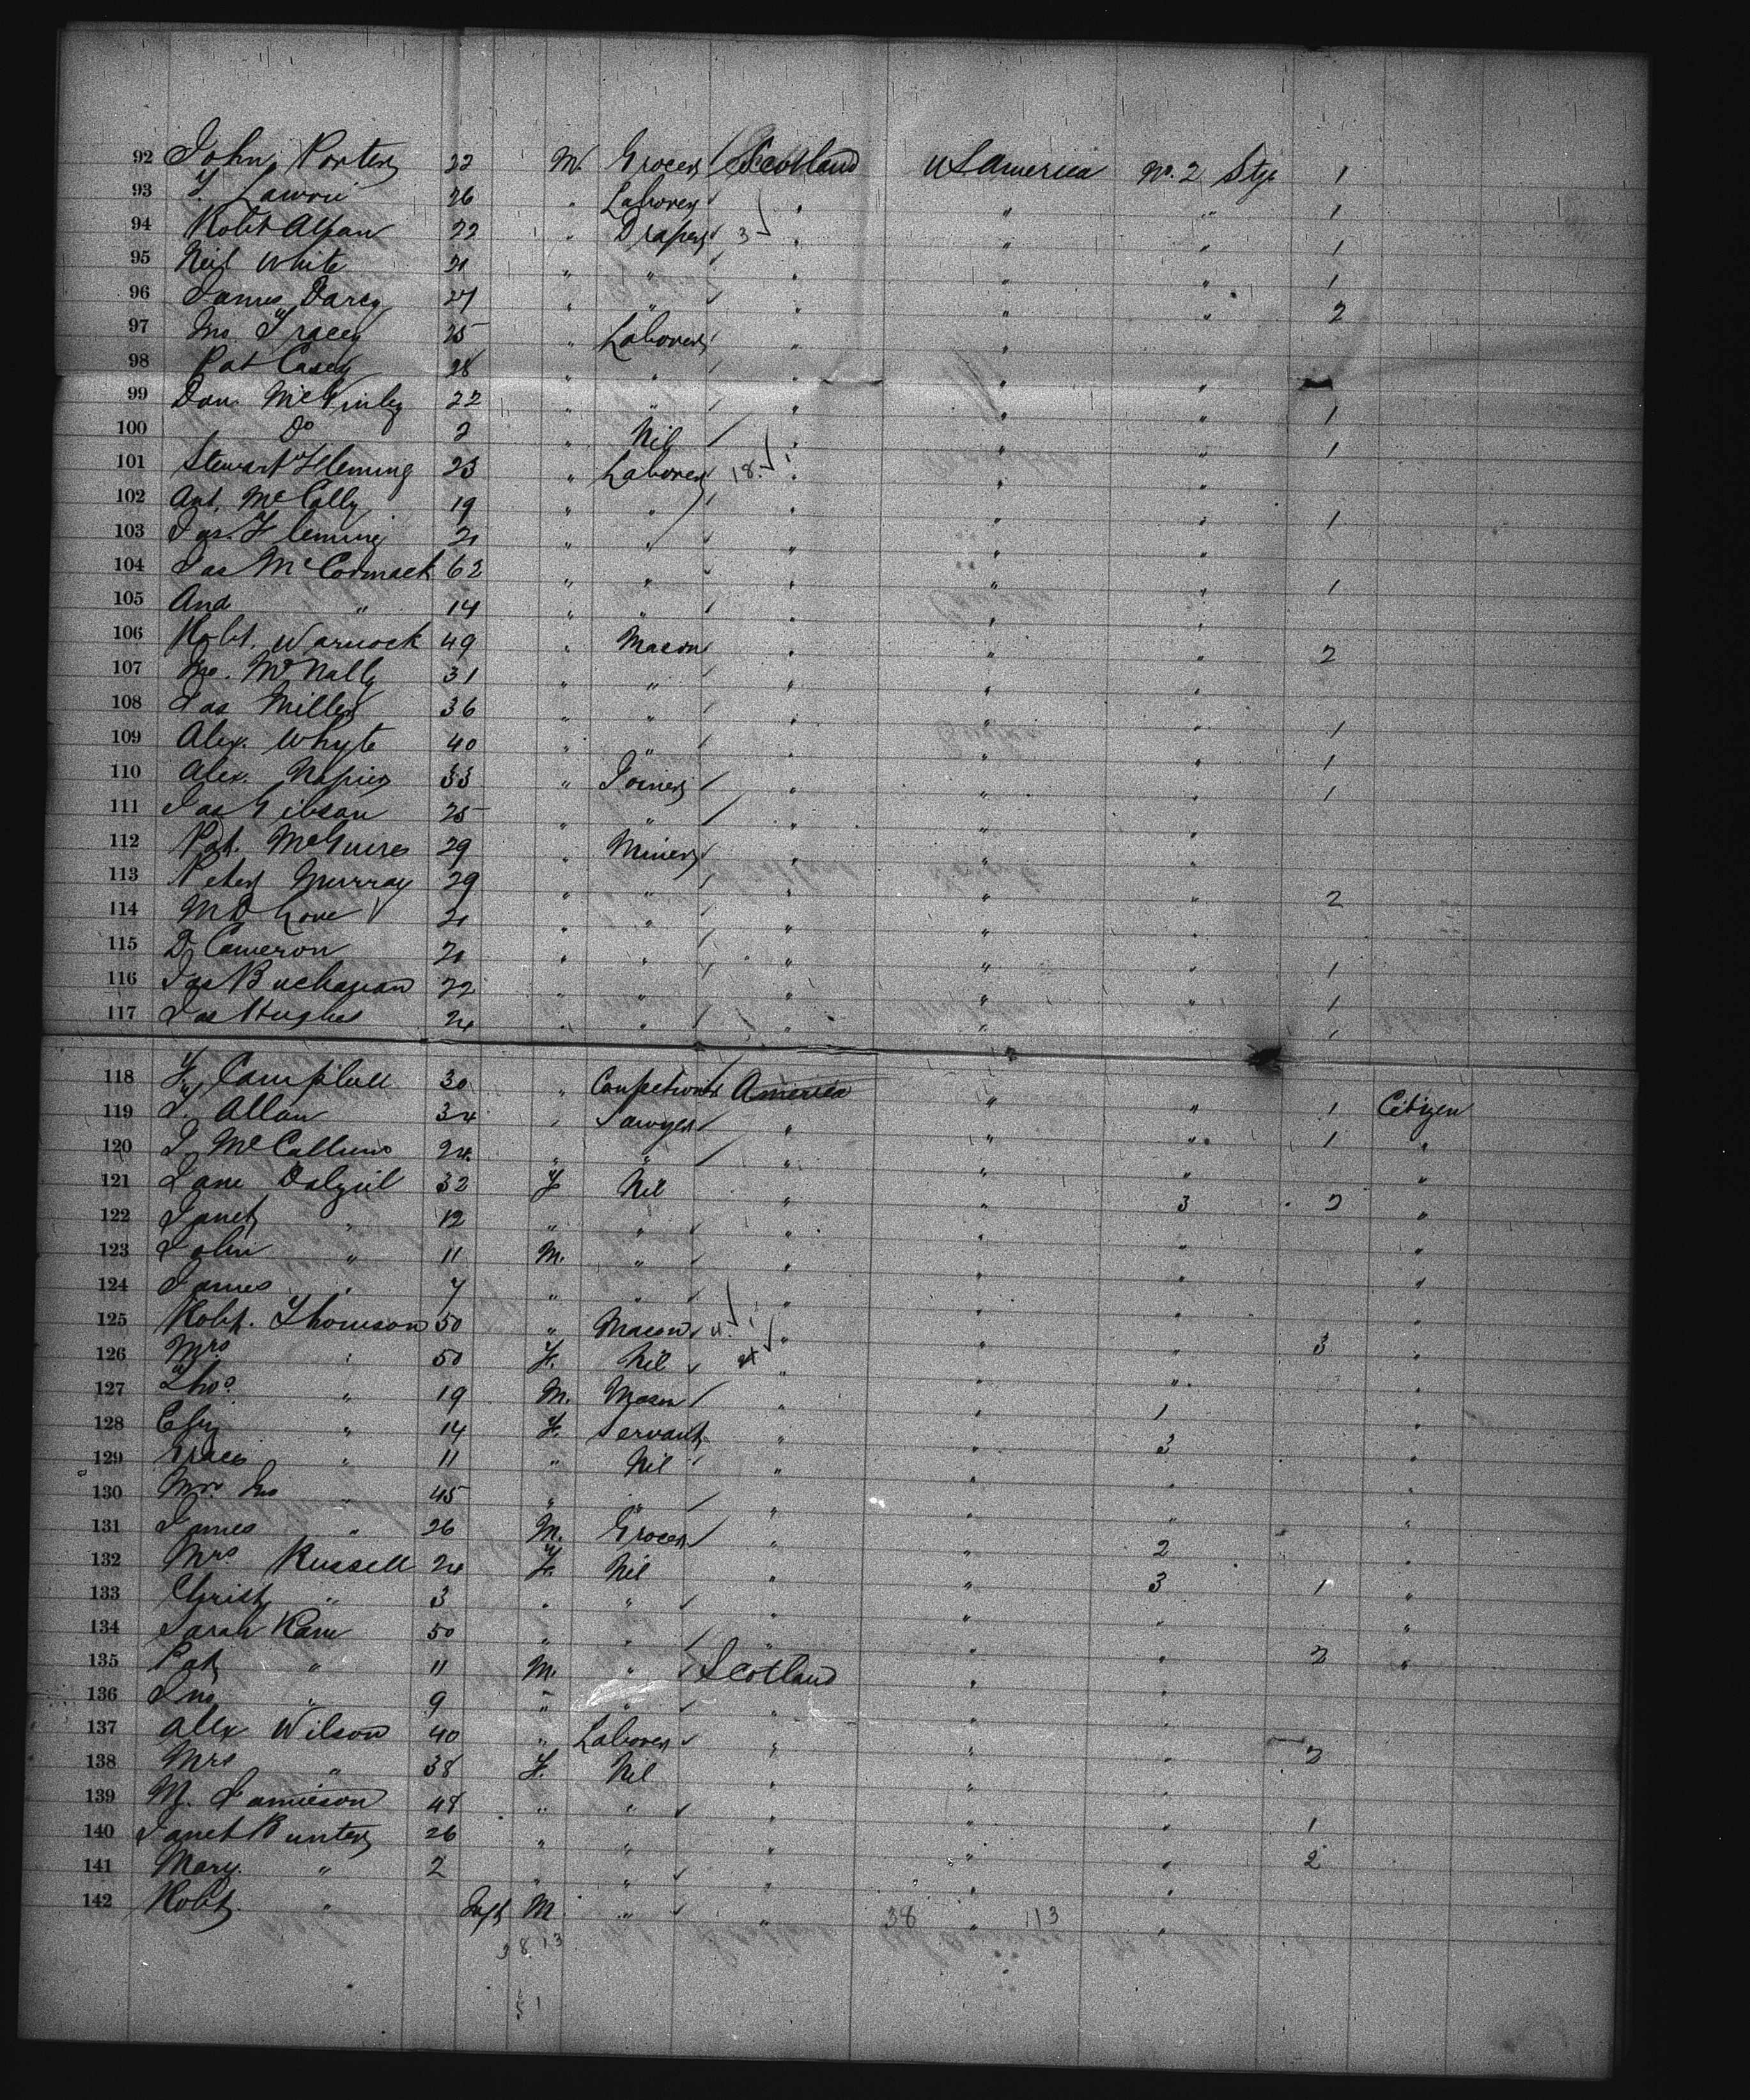 92 John Porter 22 M. Grocer Scotland US America No. 2 Stge 1
93 Lawrie 26 " Laborer " " " 1
94 Robt Allan 22 " Draper 3 " " " 1
95 Neil White 21 " " " " " 1
96 James Darcy 27 " " " " " 2
97 Jno. Tracey 25 " Laborer " "
98 Pat Casey 28 " " " " "
99 Dan McGinley 22 " " " " " 1
100 Do 2 " Nil " " " 1
101 Stewart Fleming 23 " Laborer 18 " " "
102 Ant. McCally 19 " " " " " 1
103 Jas. Fleming 21 " " " " "
104 Jas McCormack 62 " " " " " 1
105 And " 14 " " " " "
106 Robt. Warnock 49 " Mason " " " 2
107 Jno. McNally 31 " " " " "
108 Jas Miller 36 " " " " " 1
109 Alex. Whyte 40 " " " " " 1
110 Alex. Napier 33 " Joiner " " " 1
111 Jas Gibson 25 " " " " "
112 Pat. McGuire 29 " Miner " " "
113 Peter Murray 29 " " " " " 2
114 Love 21 " " " " "
115 D Cameron 21 " " " " " 1
116 Jas Buchanan 22 " " " " " 1
117 Jas Hughes 24 " " " " 1
118 Campbell 30 " Confectioner America " " 1 Citizen
119 J. Allan 34 " Sawyer " " " 1 "
120 J. McCallum 24 " " " " " "
121 Jane Dalziel 32 F Nil " " 3 2 "
122 Janet " 12 " " " " " "
123 John " 11 M. " " " " "
124 James " 7 " " " " " "
125 Robt. Thomson 50 " Mason 4 " " " 3 "
126 Mrs " 50 F. Nil " " " "
127 Thos. " 19 M. Mason " " 1 "
128 " 14 F. Servant " " 3 "
129 Grace " 11 " Nil " " " "
130 Mrs. Jno " 45 " " " " " "
131 James " 26 M. Grocer " " 2 "
132 Mrs Russell 24 F. Nil " " 3 1 "
133 Christ. " 3 " " " " " "
134 Sarah Kane 50 " " " " " 2 "
135 Pat " 11 M. " Scotland " "
136 Jno. " 9 " " " " "
137 Alex Wilson 40 " Laborer " " " 2
138 Mrs " 38 F. Nil " " "
139 M. Jamieson 48 " " " " " 1
140 Janet Bunter 26 " " " " " 2
141 Mary. " 2 " " " " "
142 Robt. " Inft M. " " " "
38 113
38 13
51